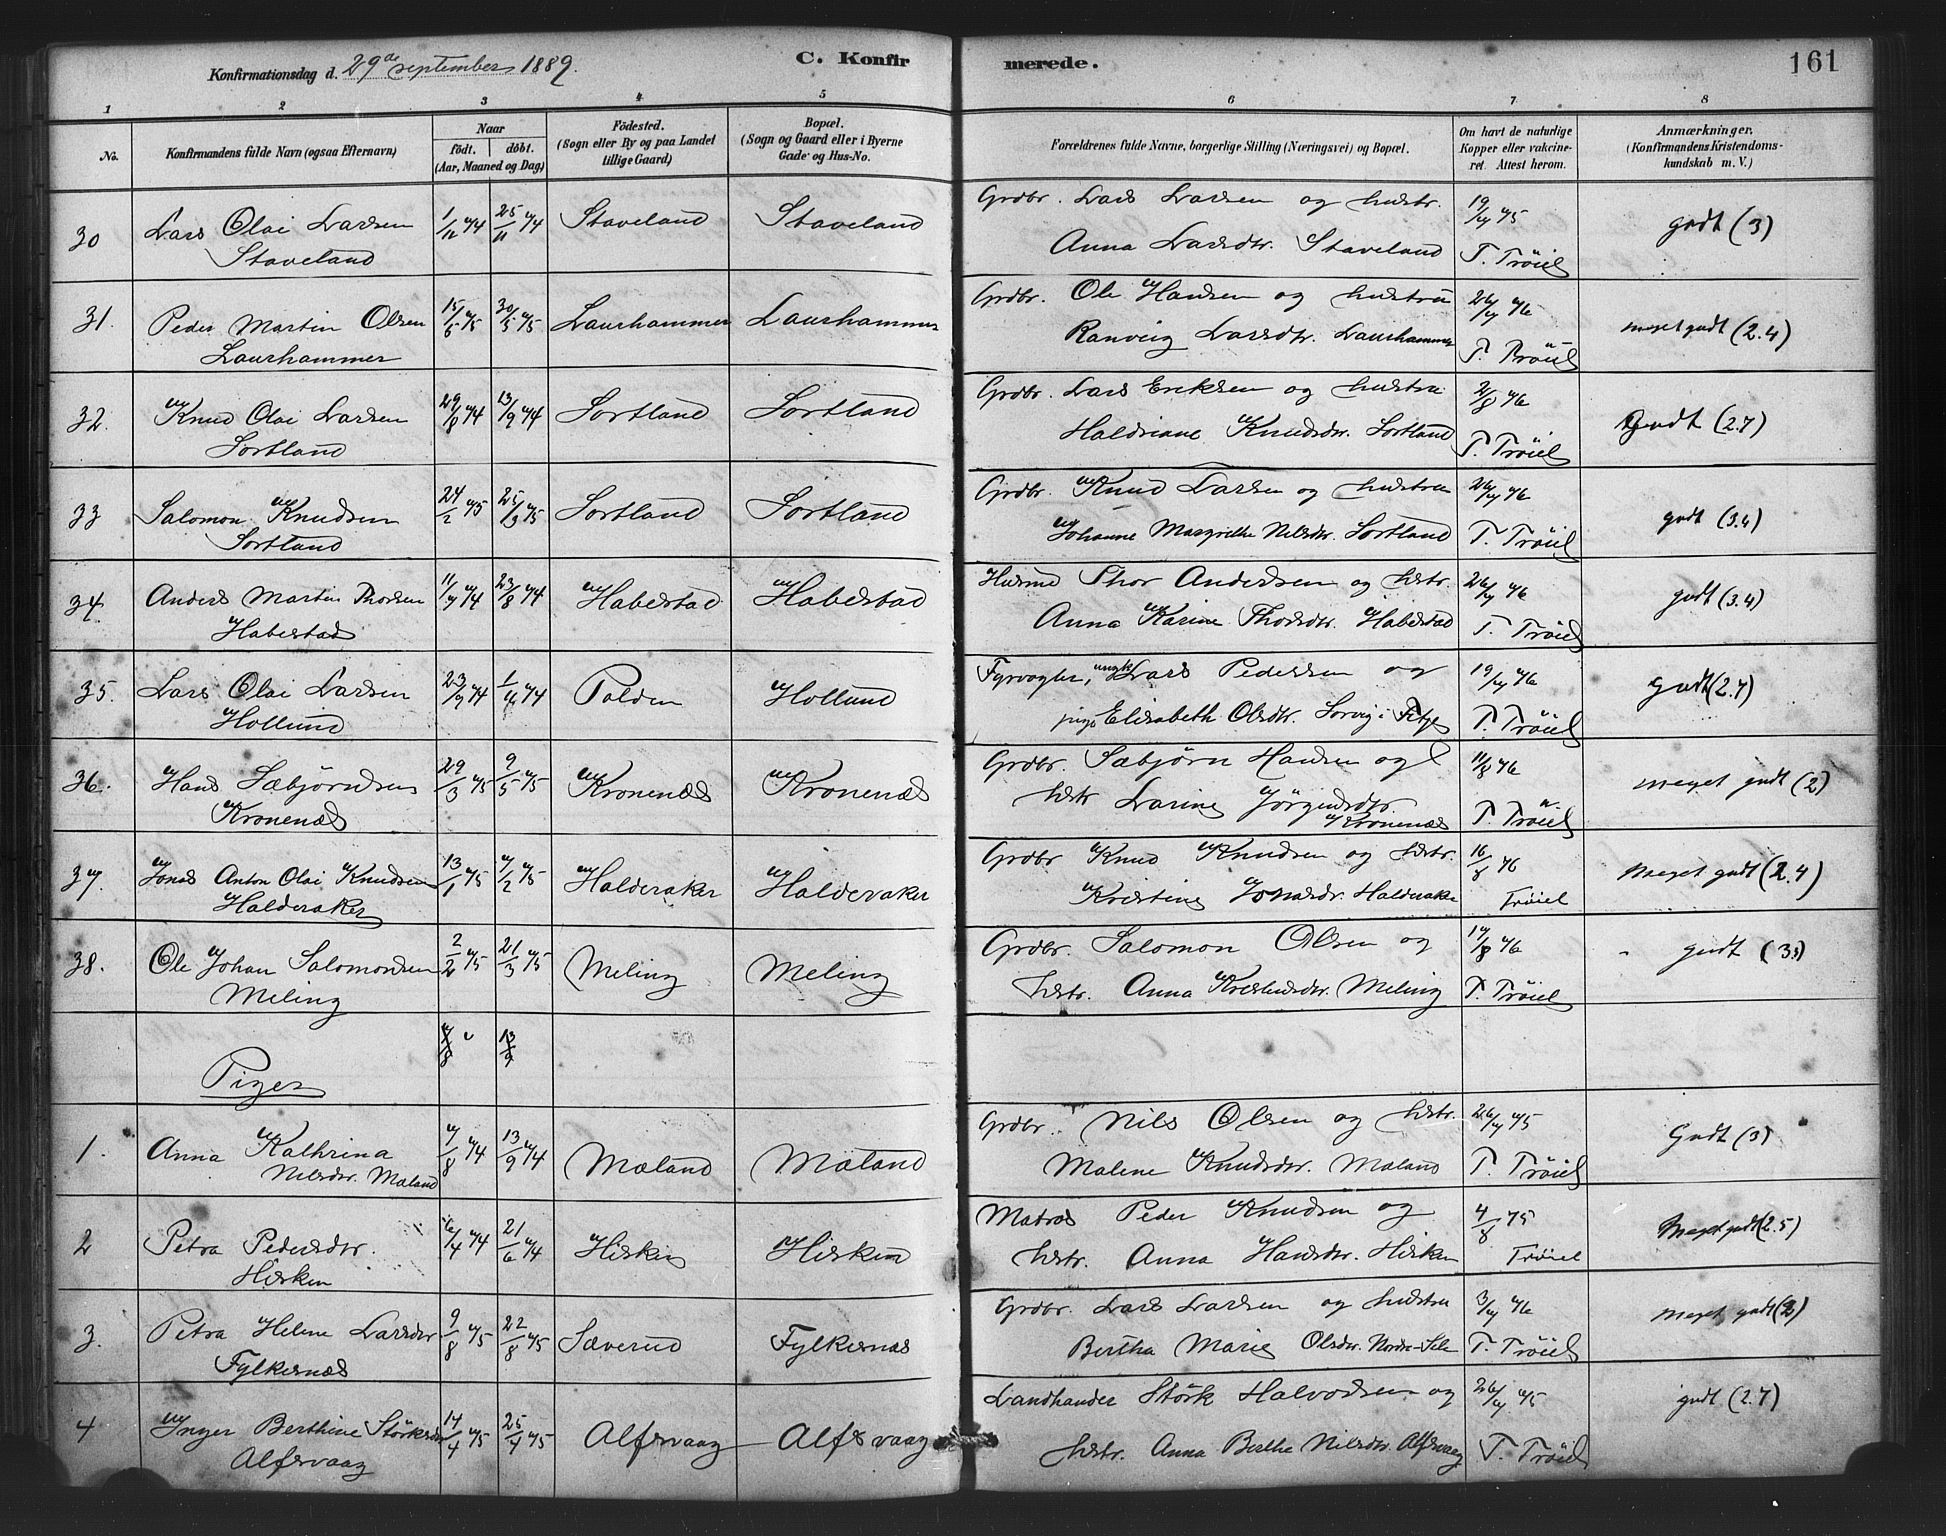 Konfirmationsdag d. 29de september 1889.
C. Konfirmerede.
161
1 2 3 4 5 6 7 8
No.
Konfirmandens fulde Navn (ogsaa Efternavn)
Naar
født. døbt.
(Aar, Maaned og Dag)
Fødested.
(Sogn eller By og paa Landet
tillige Gaard)
Bopæl.
(Sogn og Gaard eller i Byerne
Gade og Hus-No.
Forældrenes fulde Navne, borgerlige Stilling (Næringsvei) og Bopæl.
Om havt de naturlige
Kopper eller vakcine-
ret. Attest herom.
Anmærkninger.
(Konfirmandens Kristendoms-
kundskab m. V.)
30 Lars Olai Larsen 1/12 74 25/11 74 Staveland Staveland Grdbr. Lars Larsen og hustr. 19/7 75 godt (3)
Staveland Anna Larsdtr. Staveland T. Trøiel
31. Peder Martin Olsen 15/5 75 30/5 75 Laurhammer Laurhammer Grdbr. Ole Hansen og hustru 26/7 76 meget godt (2.4)
Laurhammer Ranveig Larsdtr. Laurhammer T. Trøiel
32. Knud Olai Larsen 29/8 74 13/9 74 Sortland Sortland Grdbr. Lars Eriksen og hustru 2/8 76 Godt (2.7)
Sortland Haldriane Knudsdtr. Sortland T. Trøiel
33 Salomon Knudsen 24/2 75 25/3 75 Sortland Sortland Grdbr. Knud Larsen og hustru 26/7 76 godt (3.4)
Sortland Johanne Margrethe Nilsdtr. Sortland T. Trøiel
34. Anders Martin Thorsen 11/7 74 23/8 74 Habestad Habestad Husmd Thor Andersen og hstr. 26/7 76 godt (3.4)
Habestad Anna Karine Thorsdtr. Habestad T. Trøiel
35. Lars Olai Larsen 23/9 74 Polden Hollund Fyrvogter, ungk. Lars Pedersen og 19/7 76 Godt (2.7)
Hollund pige Elisabeth Olsdtr. Sorvig i Fitje T. Trøiel
36. Hans Sæbjørnsen 29/3 75 9/5 75 Kronenæs Kronenæs Grdbr. Sæbjørn Hansen og 11/8 76 meget godt (2)
Kronenæs hstr Larine Jørgensdtr Kronenæs T. Trøiel
37. Jonas Anton Olai Knudsen 13/1 75 7/2 75 Halderaker Halderaker Grdbr Knud Knudsen og hstr. 16/8 76 Meget godt (2.4)
Halderaker Kristine Jonasdr. Halderaker Trøiel
38. Ole Johan Salomonsen 2/2 75 21/3 75 Meling Meling Grdbr. Salomon Olsen og 17/8 76 godt (3)
Meling hstr. Anna Kristensdtr. Meling T. Trøiel
7/8 13/9
Piger
1. Anna Kathrina 7/8 74 13/9 74 Mæland Mæland Grdbr. Nils Olsen og hstr. 26/7 75 Godt (3)
Nilsdtr. Mæland Malene Knudsdtr. Mæland T. Trøiel
2 Petra Pedersdtr. 16/4 74 21/6 74 Hisken Hisken Matros Peder Knudsen og 4/8 75 Meget godt (2.5)
Hisken hstr. Anna Hansdtr. Hisken Trøiel
3. Petra Helene Larsdtr 9/8 75 22/8 75 Sæverud Fylkesnæs Grdbr. Lars Larsen og hustru 3/7 76 meget godt (2)
Fylkesnæs Bertha Marie Olsdtr. Nordre-Sele T. Trøiel
4 Inger Berthine Størksdtr 14/4 75 25/4 75 Alfsvaag Alfsvaag Landhandler Størk Halvorsen og 26/7 75 godt (2.7)
Alfsvaag hstr. Anna Berthe Nilsdtr. Alfsvaag T. Trøiel